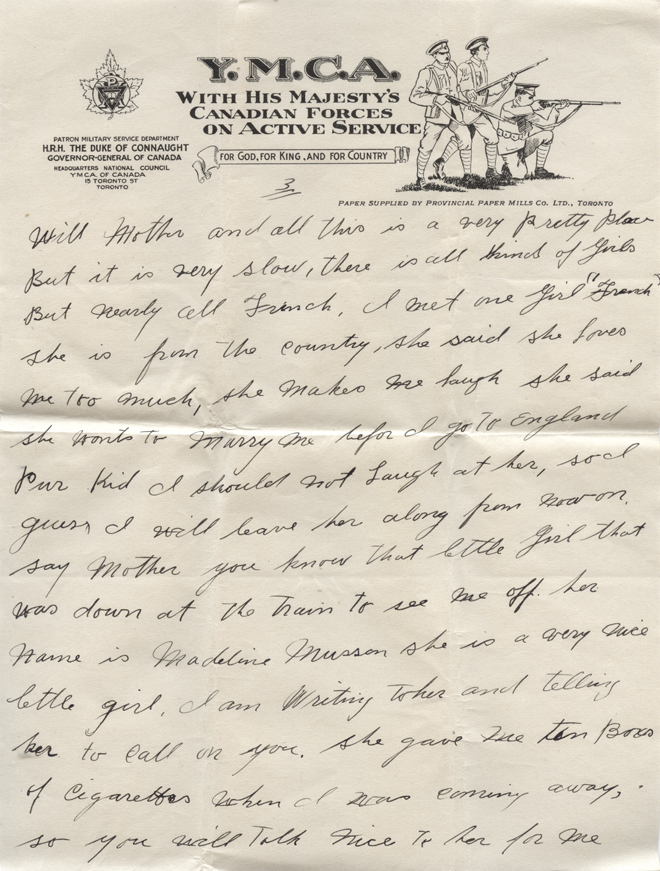 Y.M.C.A.
WITH HIS MAJESTY'S
CANADIAN FORCES
ON ACTIVE SERVICE
FOR GOD, FOR KING, AND FOR COUNTRY
PATRON MILITARY SERVICE DEPARTMENT
H.R.H. THE DUKE OF CONNAUGHT
GOVERNOR-GENERAL OF CANADA
HEADQUARTERS NATIONAL COUNCIL
Y.M.C.A. OF CANADA
15 TORONTO ST
TORONTO
3
PAPER SUPPLIED BY PROVINCIAL PAPER MILLS CO. LTD., TORONTO
Will Mother and all this is a very pretty place
But it is very slow, there is all kinds of Girls
But nearly all French, I met one Girl "French"
she is from the country, she said she loves
me too much, she makes me laugh she said
she wonts to Marry me befor I go to England
Pur Kid I should not Laugh at her, so I
guess I will leave her along from now on.
say Mother you know that little Girl that
was down at the train to see me off. her
name is Madeline Musson she is a very nice
little girl, I am Writing to her and telling
her to call on you. she gave me ten Boxs
of Cigarettes when I was coming away,
so you will Talk nice to her for me